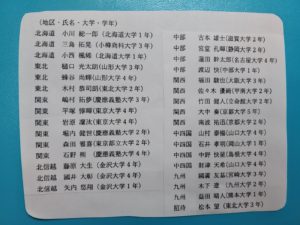 (地区・氏名・大学・学年)
北海道 小川 総一郎 (北海道大学1年)
北海道 三島 拓晃 (小樽商科大学3年)
北海道 小西 楓稀 (北海道大学1年)
東北 樋口 光太朗(山形大学3年)
東北 蜂谷 尚輝(山形大学4年)
東北 木村 恭司朗(東北大学2年)
関東 嶋村 拓夢(慶應義塾大学3年)
関東 平塚 惇暉(東京大学4年)
関東 岩原 瀧汰(東京大学4年)
関東 堀内 健智(慶應義塾大学2年)
関東 森田 雅喜(東京都立大学2年)
関東 石野 樹 (慶應義塾大学4年)
北信越 藤原 大生 (金沢大学4年)
北信越 國井 大彰 (金沢大学4年)
北信越 矢内 悠翔 (金沢大学1年)
中部 古本 雄士(滋賀大学2年)
中部 宮室 孔暉(静岡大学2年)
中部 蓮田 幹太郎(名古屋大学4年)
中部 渡辺 快(中部大学1年)
関西 福田 駿也(大阪大学3年)
関西 佐々木 優絆(甲南大学2年)
関西 竹田 健人(立命館大学2年)
関西 大中 奏(京都大学5年)
関西 南波 拓迅(京都大学2年)
中四国 山村 泰揚(山口大学4年)
中四国 石井 孝明(岡山大学1年)
中四国 中野 快誕(島根大学4年)
中四国 財津 天希(山口大学4年)
九州 國廣 友基(宮崎大学4年)
九州 木下 遼 (九州大学2年)
九州 益田 悠詩(熊本大学1年)
招待 松本 望 (東北大学3年)